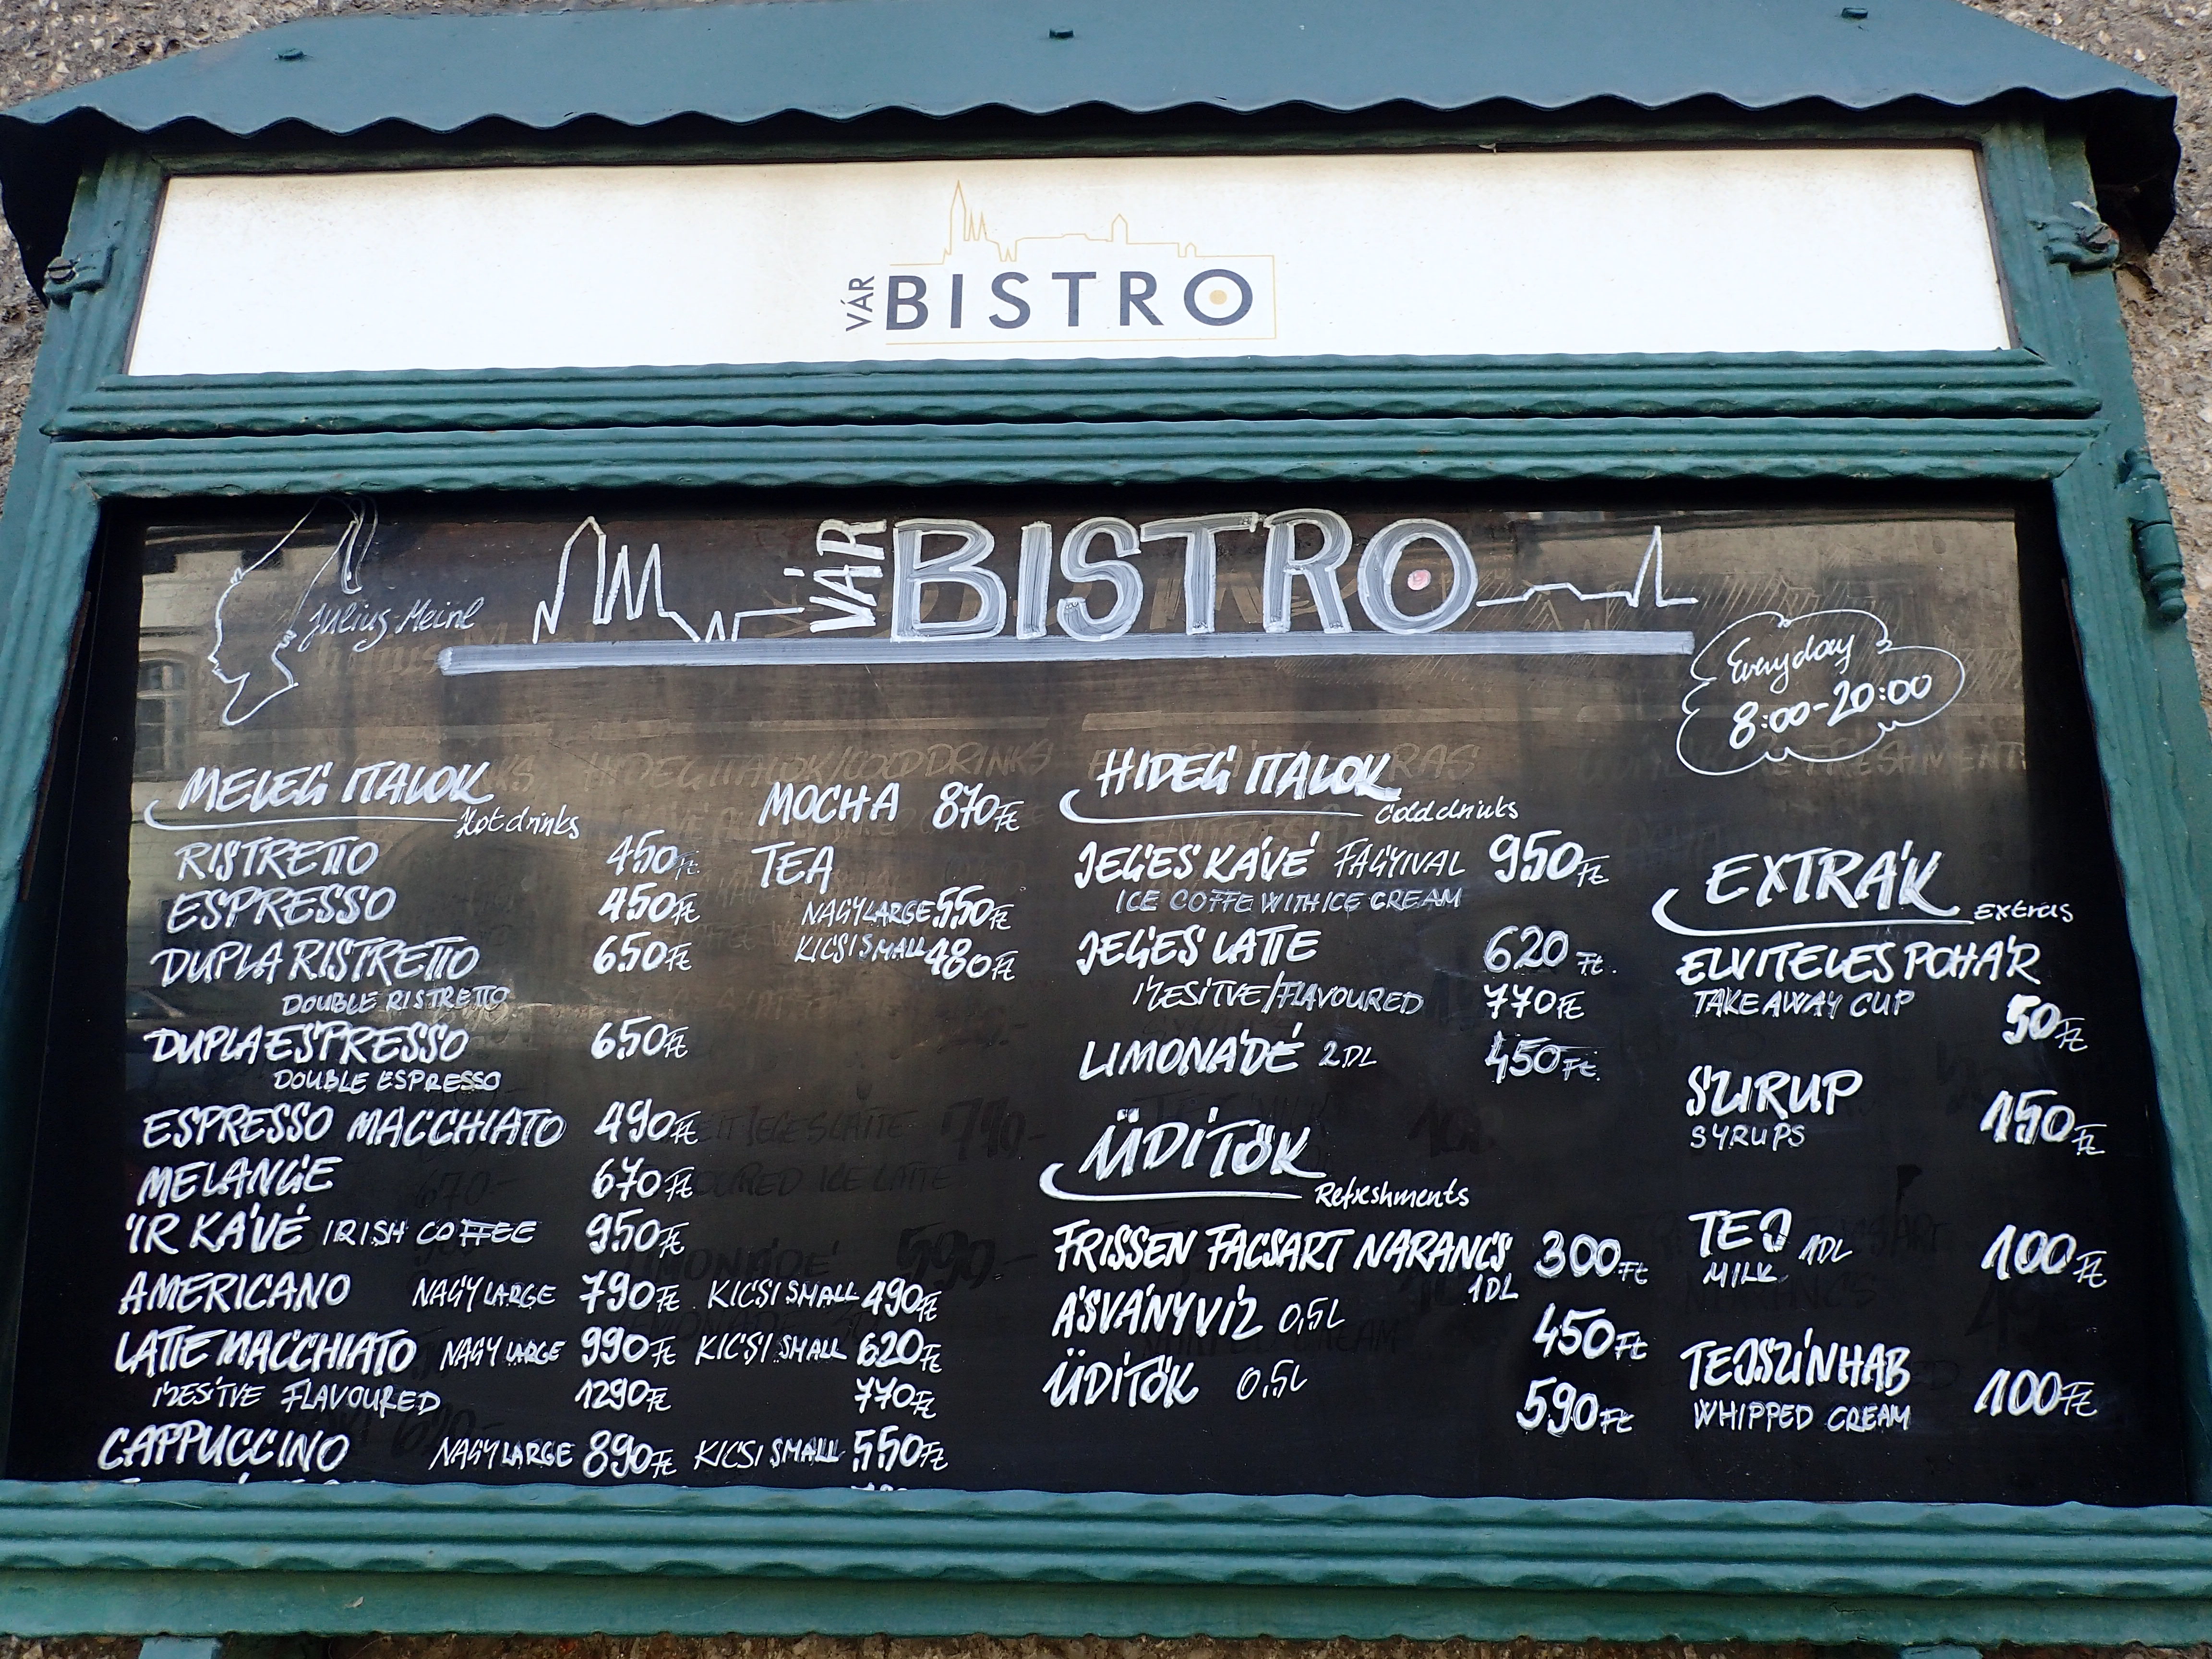 VÁR BISTRO
Julius Meinl
VÁR BISTRO
Everyday
8:00-20:00
MELEG ITALOK
Hot drinks
RISTRETTO 450 Ft
ESPRESSO 450 Ft
DUPLA RISTRETTO 650 Ft
DOUBLE RISTRETTO
DUPLA ESPRESSO 650 Ft
DOUBLE ESPRESSO
ESPRESSO MACCHIATO 490 Ft
MELANGE 670 Ft
ÍR KÁVÉ IRISH COFFEE 950 Ft
AMERICANO NAGY LARGE 790 Ft KICSI SMALL 490 Ft
LATTE MACCHIATO NAGY LARGE 990 Ft KICSI SMALL 620 Ft
ÍZESÍTVE FLAVOURED 1290 Ft 770 Ft
CAPPUCCINO NAGY LARGE 890 Ft KICSI SMALL 550 Ft
MOCHA 870 Ft
TEA
NAGY LARGE 550 Ft
KICSI SMALL 480 Ft
HIDEG ITALOK
Cold drinks
JEGES KÁVÉ FAGYIVAL 950 Ft
ICE COFFE WITH ICE CREAM
JEGES LATTE 620 Ft.
ÍZESÍTVE/FLAVOURED 770 Ft
LIMONÁDÉ 2DL 450 Ft.
ÜDÍTŐK
Refreshments
FRISSEN FACSART NARANCS 300 Ft
1DL
ÁSVÁNYVÍZ 0,5L 450 Ft
ÜDÍTŐK 0,5L 590 Ft
EXTRÁK
extras
ELVITELES POHÁR
TAKE AWAY CUP 50 Ft
SZIRUP 150 Ft
SYRUPS
TEJ 1DL 100 Ft
MILK
TEJSZÍNHAB 100 Ft
WHIPPED CREAM